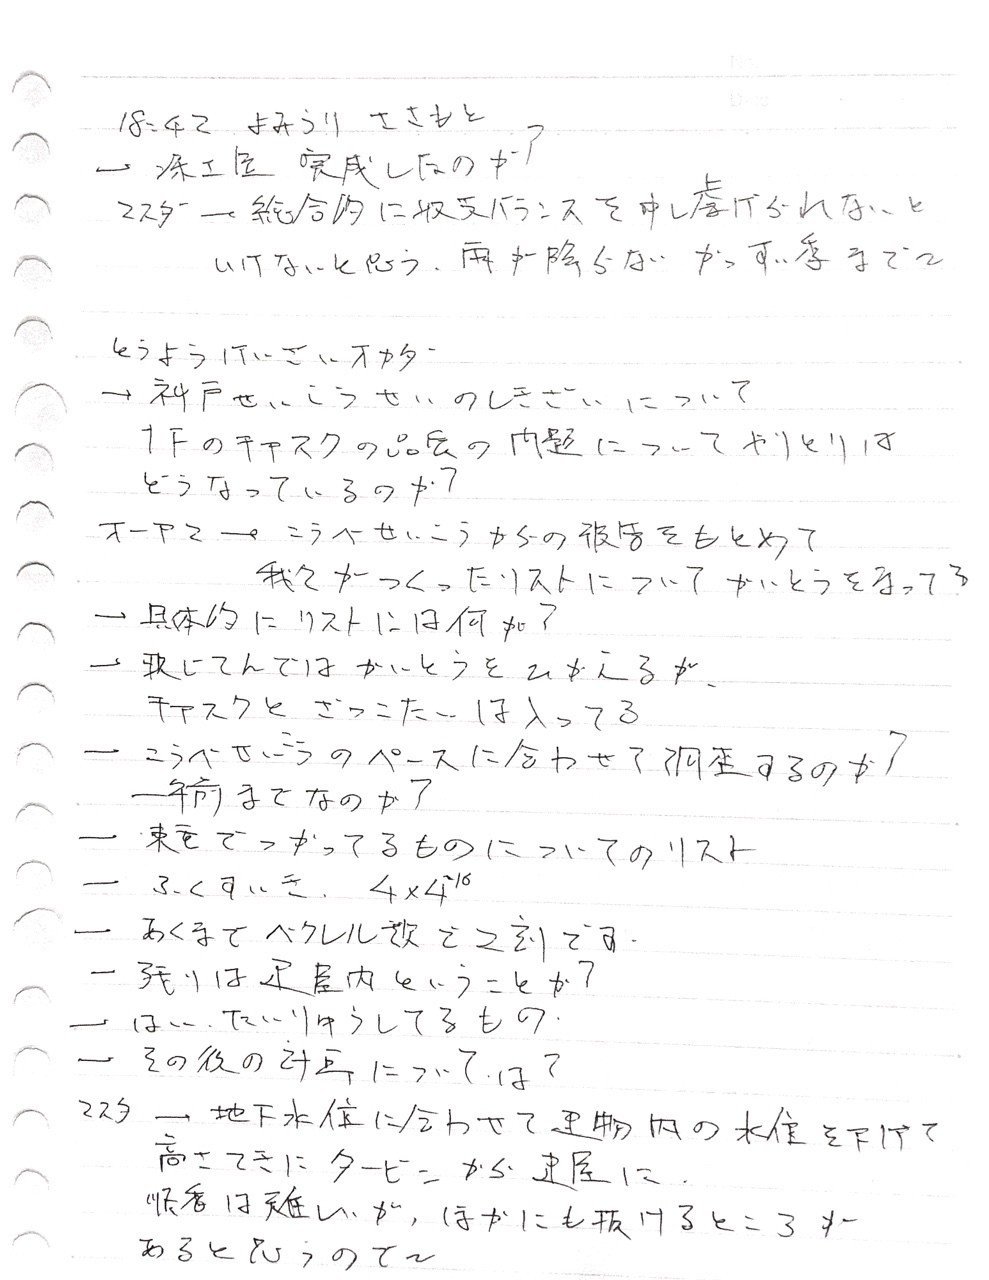 18:42 よみうり ささもと
→ 凍土壁 完成したのか?
マスダ → 総合的に収支バランスを申し上げられないと
いけないと思う. 雨が降らない かっすい季まで〜
とうようけいざいオカダー
→ 神戸せいこうせいのしきざいについて
1Fのキャスクの品質の問題についてやりとりは
どうなっているのか?
オーヤマ → こうべせいこうからの報告をもとめて
我々がつくったリストについてかいとうをまってる
→ 具体的にリストには何が?
→ 現じてんではかいとうをひかえるが、
キャスクと ざっこたいは入ってる
→ こうべせいこうのペースに合わせて調査するのか?
一年前までなのか?
→ 東電でつかってるものについてのリスト
→ ふくすいき. 4×4
→ あくまでベクレル数で2割です.
→ 残りは建屋内ということか?
→ はい. たいりゅうしてるもの.
→ その後の計画については?
マスダ → 地下水位に合わせて建物内の水位を下げて
高さてきにタービンから建屋に.
順番は難しいが, ほかにも抜けるところが
あると思うので〜